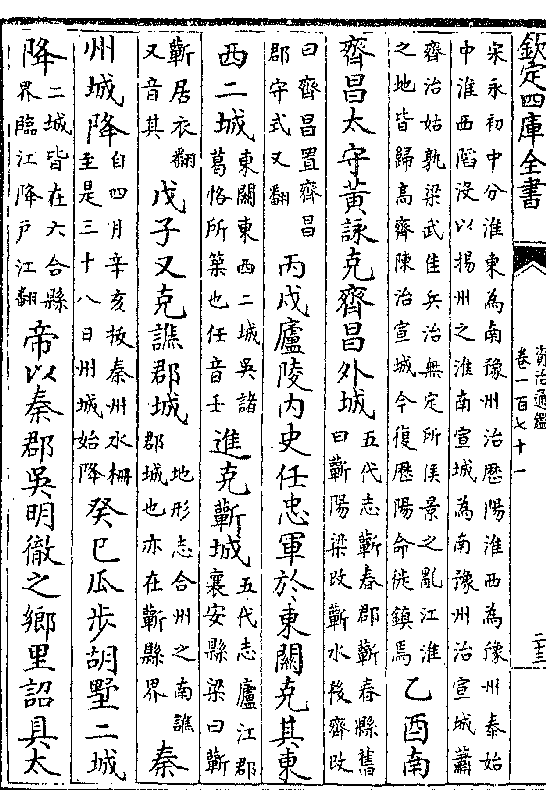 欽定四庫全書
資治通鑑
卷一百七十一
二十三
宋永初中分淮東為南豫州治歷陽淮西為豫州泰始
中淮西陷没以揚州之淮南宣城為南豫州治宣城蕭
齊治姑孰梁武隹兵治無定所侯景之亂江淮
之地皆歸高齊陳治宣城今復歷陽命徙鎮焉
乙酉南
齊昌太守黄詠克齊昌外城
五代志蘄春郡蘄春縣舊
曰蘄陽梁改蘄水後齊改
曰齊昌置齊昌
郡守式又翻
丙戌廬陵内史任忠軍於東關克其東
西二城
東關東西二城吳諸
葛恪所築也任音壬
進克蘄城
五代志廬江郡
襄安縣梁曰蘄
蘄居衣翻
又音其
戊子又克譙郡城
地形志合州之南譙
郡城也亦在蘄縣界
秦
州城降
自四月辛亥拔秦州水柵
至是三十八日州城始降
癸巳瓜步胡墅二城
降
二城皆在六合縣
界臨江降戶江翻
帝以秦郡吳明徹之鄉里詔具太